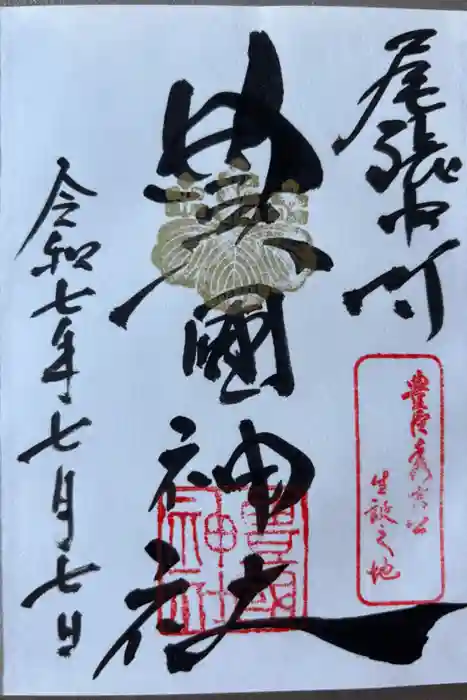 尾張中村
豊臣秀吉公
生誕之地
豊國神社
豊國神社
令和七年七月七日